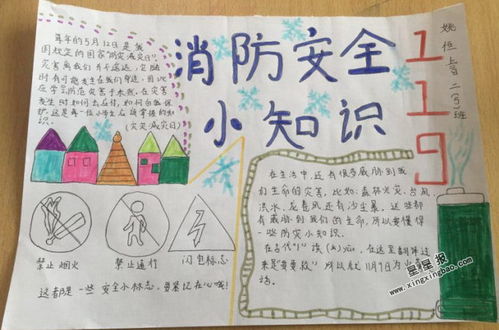 消防安全
小知识
119
二(3)班
每年的5月12日是我
国规定的国家"防灾减灾日"。
灾害离我们并不遥远,灾难
时有可能发生在我们身边,因此
应学会防范灾害于未然,在灾害
发生时如何去应付,如何自我保
护,这是每一位小学生应该掌握的知
识。
(灾灾减灾日)
禁止烟火
禁止通行
闪电标志
这都是一些安全小标志,要紧记在心哦!
在生活中,还有很多威胁到我
们生命的灾害,比如:森林火灾、台风
洪水、龙卷风还有沙尘暴。这些都
有威胁到我们的生命,所以要懂得
一些防灾小知识。
在古代"1"读(yāo),在这里翻译过
来是"要要救"所以就11月9日为
星星报
www.xingxingbao.com